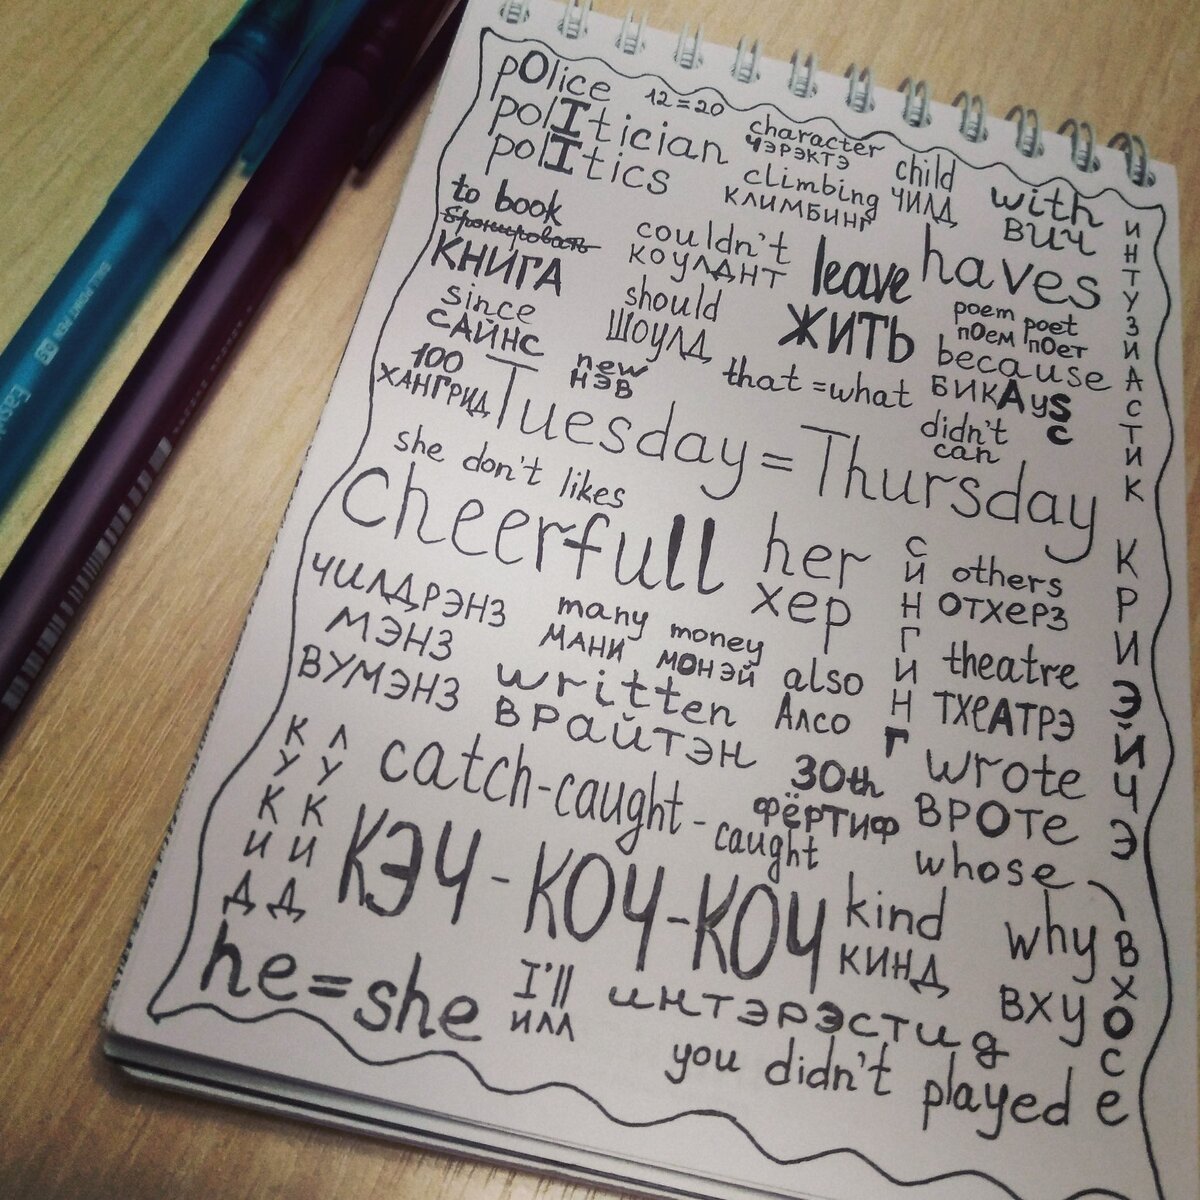 pOlice
polItician
polItics
12=20
character
ЧЭРЭКТЭ
child
ЧИЛД
climbing
КЛИМБИНГ
with
ВИЧ
to book
бронировать
КНИГА
couldn't
КОУЛДНТ
leave
ЖИТЬ
haves
ИНТУЗИАСТИК
since
САЙНС
should
ШОУЛД
poem poet
пОем пОет
because
БИКАУС
S
100
ХАНГРИД
new
НЭВ
that = what
didn't
can
Tuesday = Thursday
she don't likes
cheerfull
her
хер
СИНГИНГ
others
ОТХЕРЗ
КРИЭЙЧЭ
ЧИЛДРЭНЗ
МЭНЗ
ВУМЭНЗ
many money
МАНИ МОНЭЙ
also
Алсо
theatre
ТХЕАТРЭ
written
ВРАЙТЭН
КУКИД
ЛУКИД
catch-caught-caught
КЭЧ - КОЧ - КОЧ
30th
ФЁРТИФ
wrote
ВРОТЕ
whose
ВХОСе
kind
КИНД
why
ВХУ
he = she
I'll
ИЛЛ
интэрэстид
you didn't played